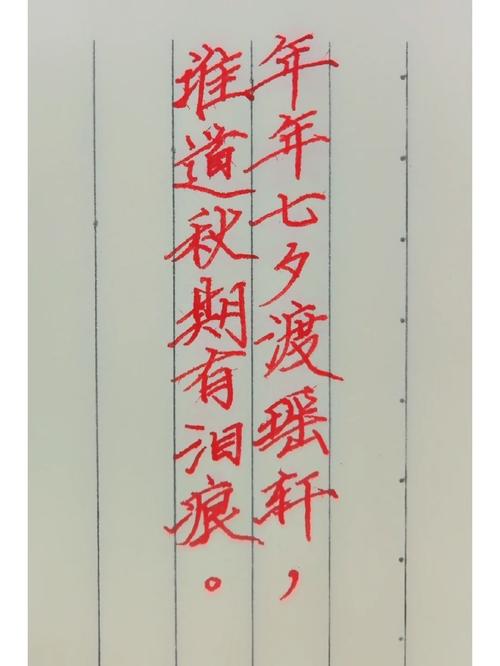 年年七夕渡瑶轩，
谁道秋期有泪痕。